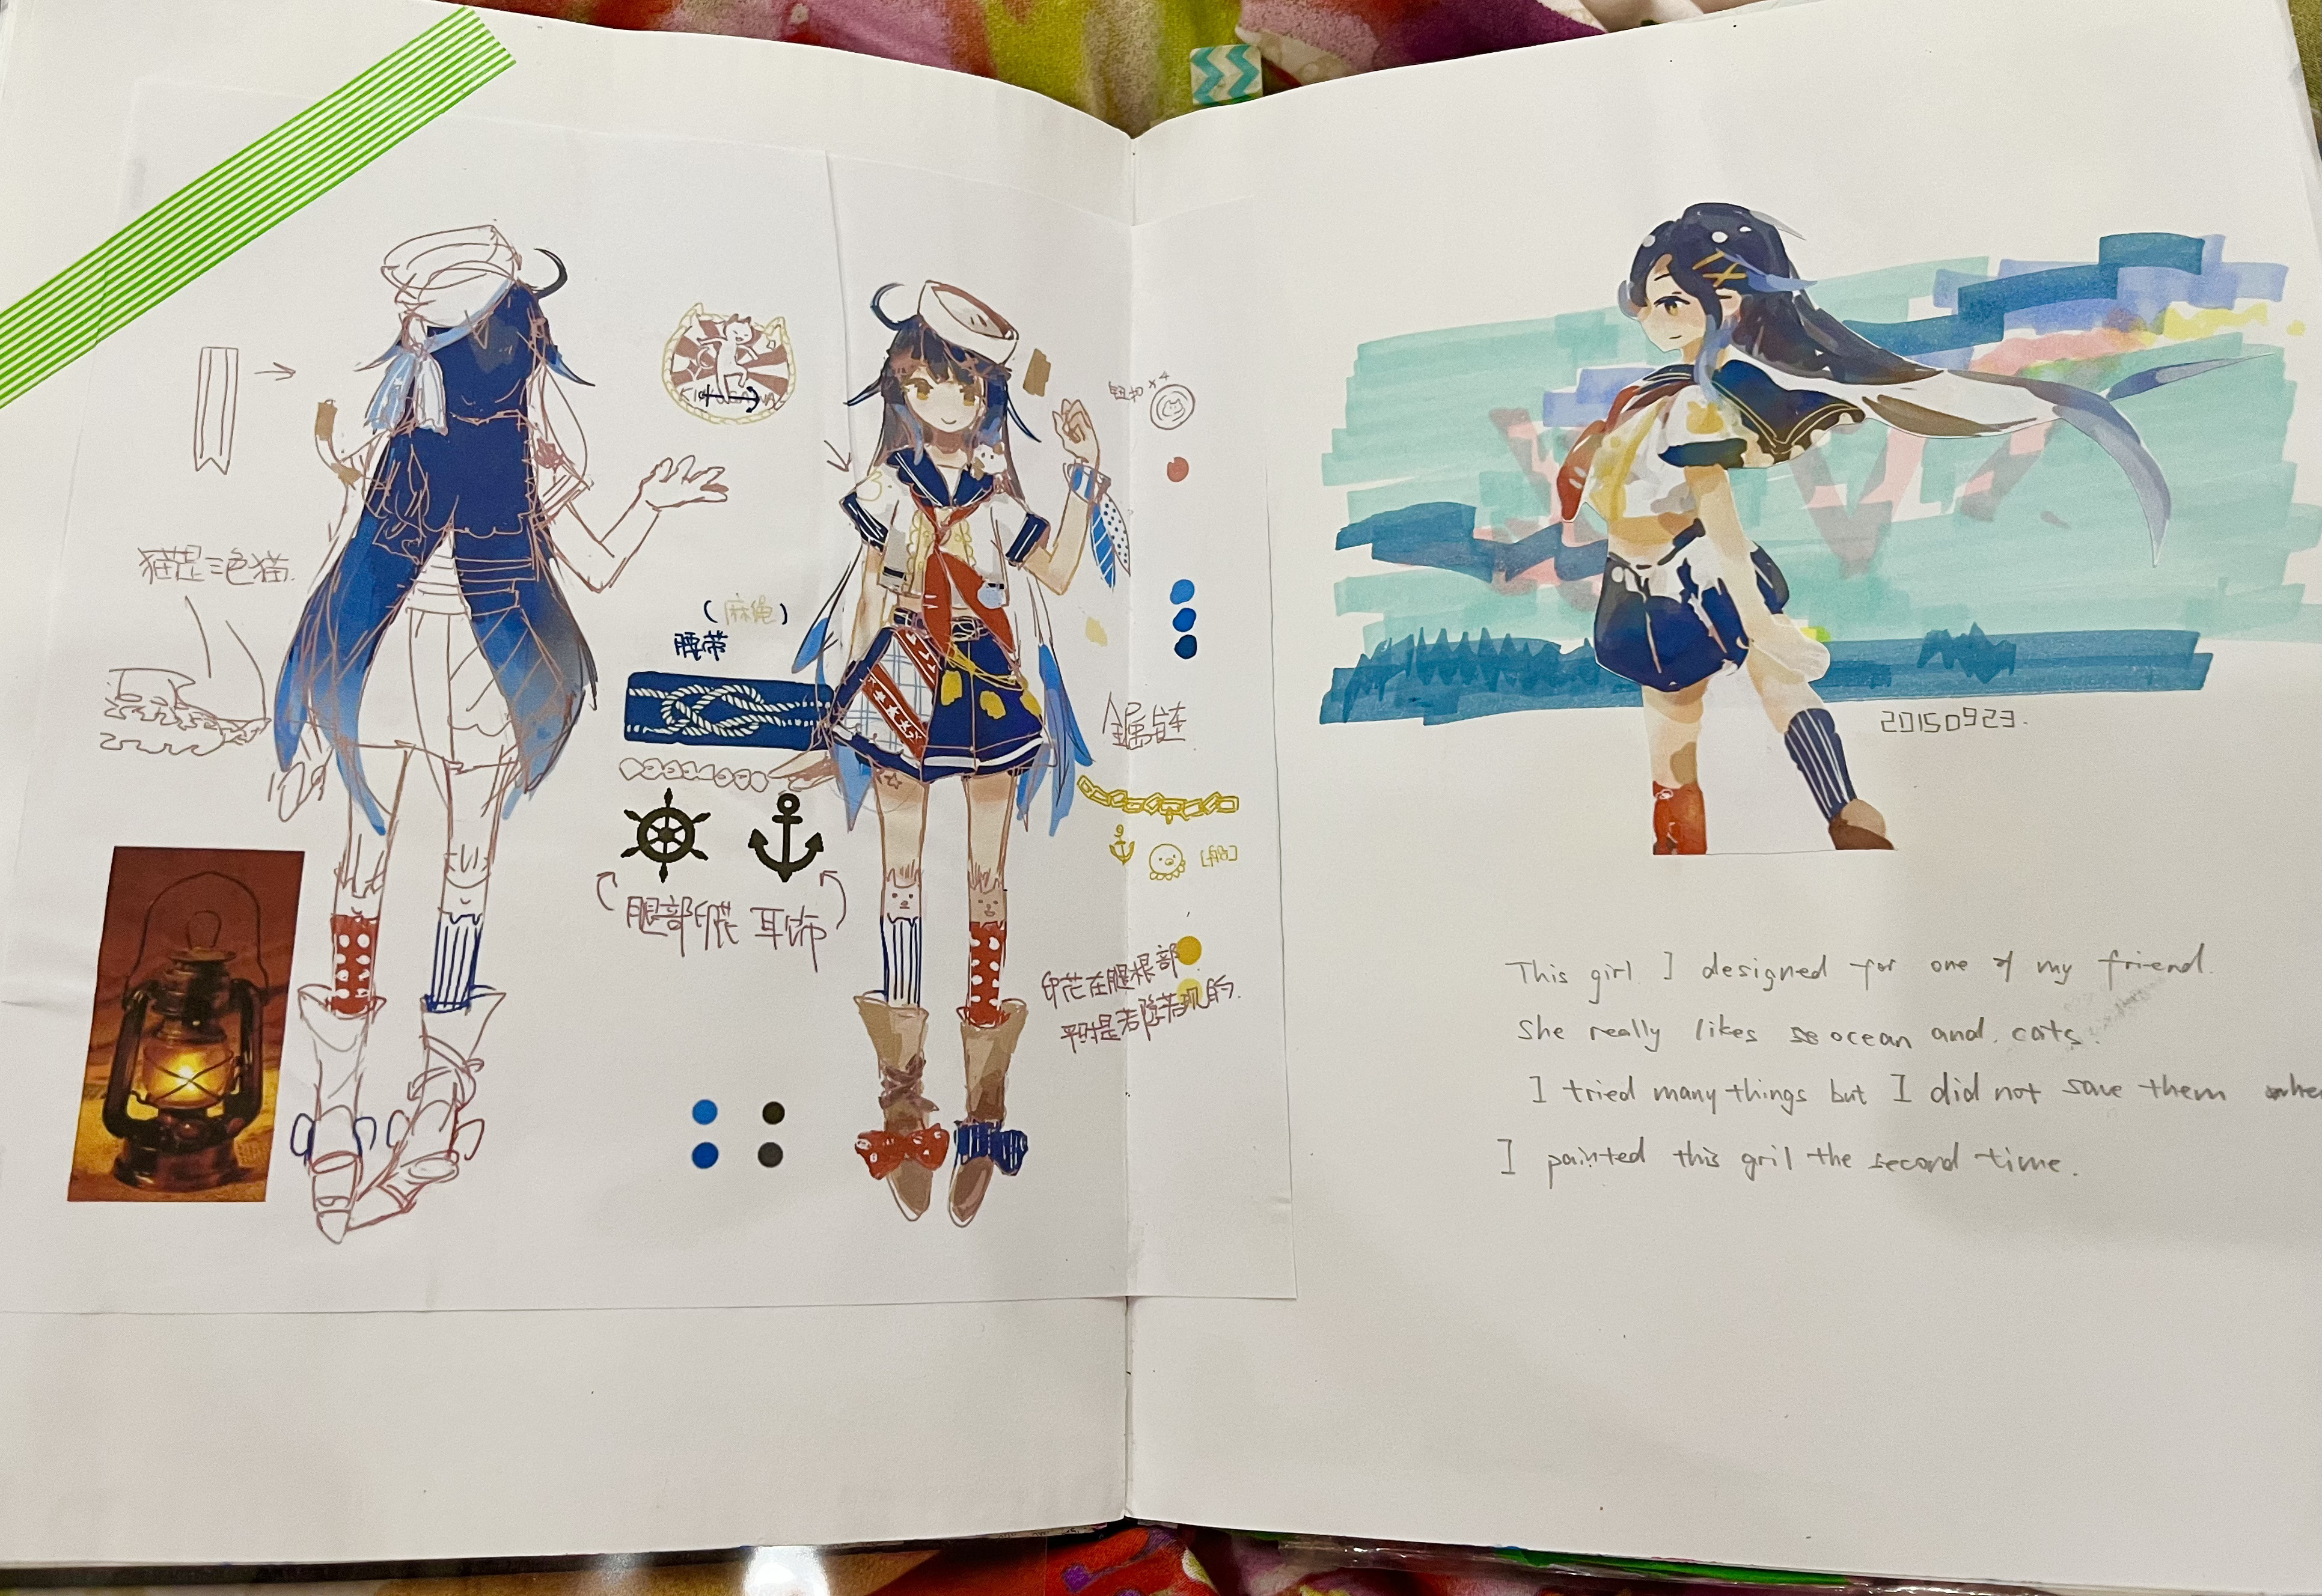 猫是三色猫.
(麻绳)
腰带
腿部印花 耳饰
钮扣×4
金属链
[船]
印花在腿根部
平时是若隐若现的.
20150923.
This girl I designed for one of my friend.
She really likes se ocean and. cats.
I tried many things but I did not save them whe
I painted this gril the second time.